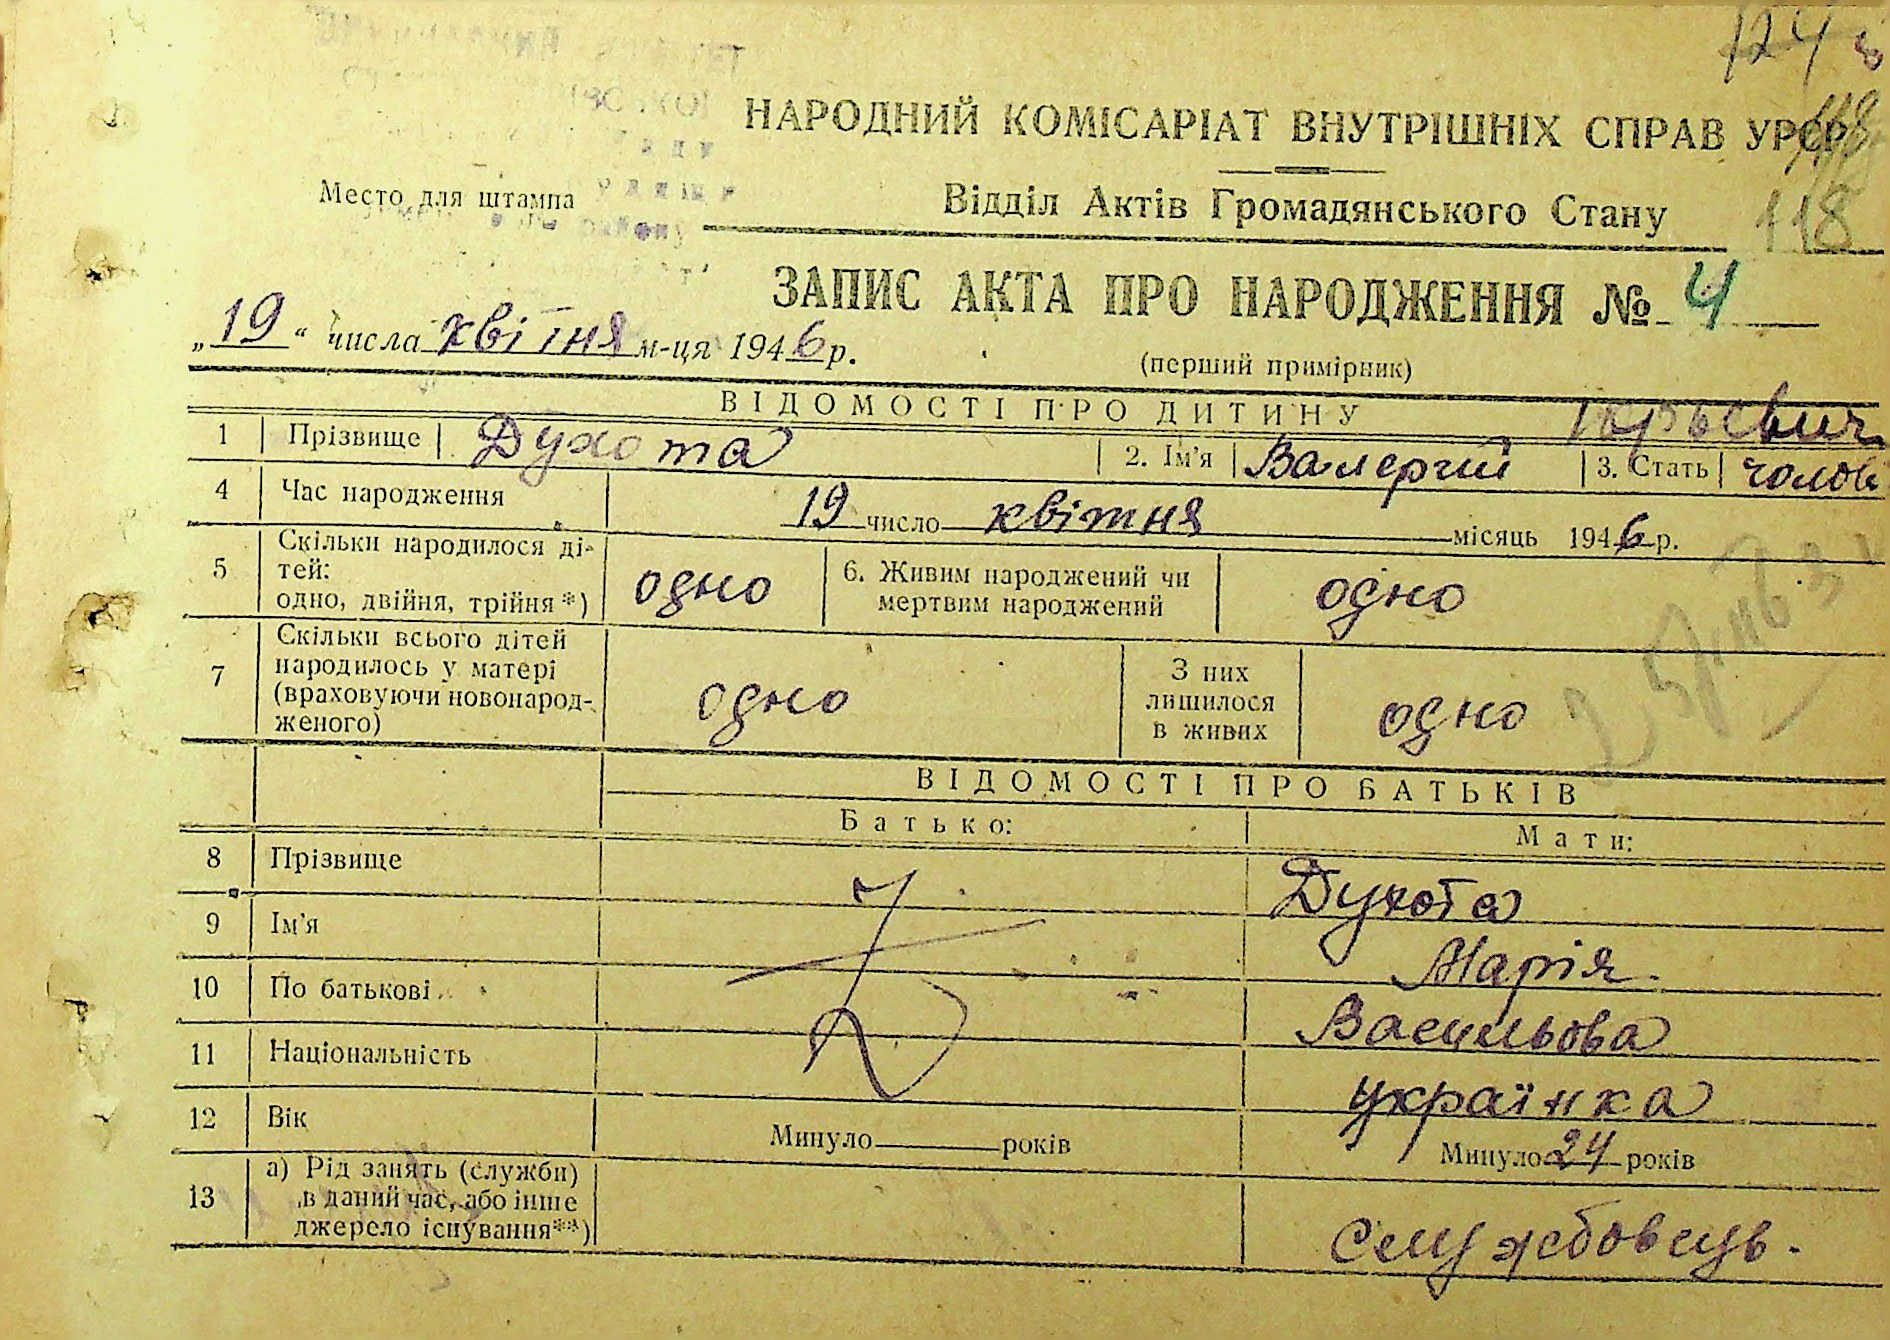 124
118
НАРОДНИЙ КОМІСАРІАТ ВНУТРІШНІХ СПРАВ УРСР
Место для штампа
Відділ Актів Громадянського Стану
118
ЗАПИС АКТА ПРО НАРОДЖЕННЯ № 4
„19“ числа квітня м-ця 1946 р.
(перший примірник)
ВІДОМОСТІ ПРО ДИТИНУ
Юрьевич
1 Прізвище Духота 2. Ім'я Валергий 3. Стать чолов
4 Час народження 19 число квітня місяць 1946 р.
5 Скільки народилося ді-
тей:
одно, двійня, трійня*) одно 6. Живим народжений чи
мертвим народжений одно
7 Скільки всього дітей
народилось у матері
(враховуючи новонарод-
женого) одно З них
лишилося
в живих одно
ВІДОМОСТІ ПРО БАТЬКІВ
Батько: Мати:
8 Прізвище Духота
9 Ім'я Марія
10 По батькові Васильова
11 Національність українка
12 Вік Минуло років Минуло 24 років
13 а) Рід занять (служби)
в даний час, або інше
джерело існування**) службовець.